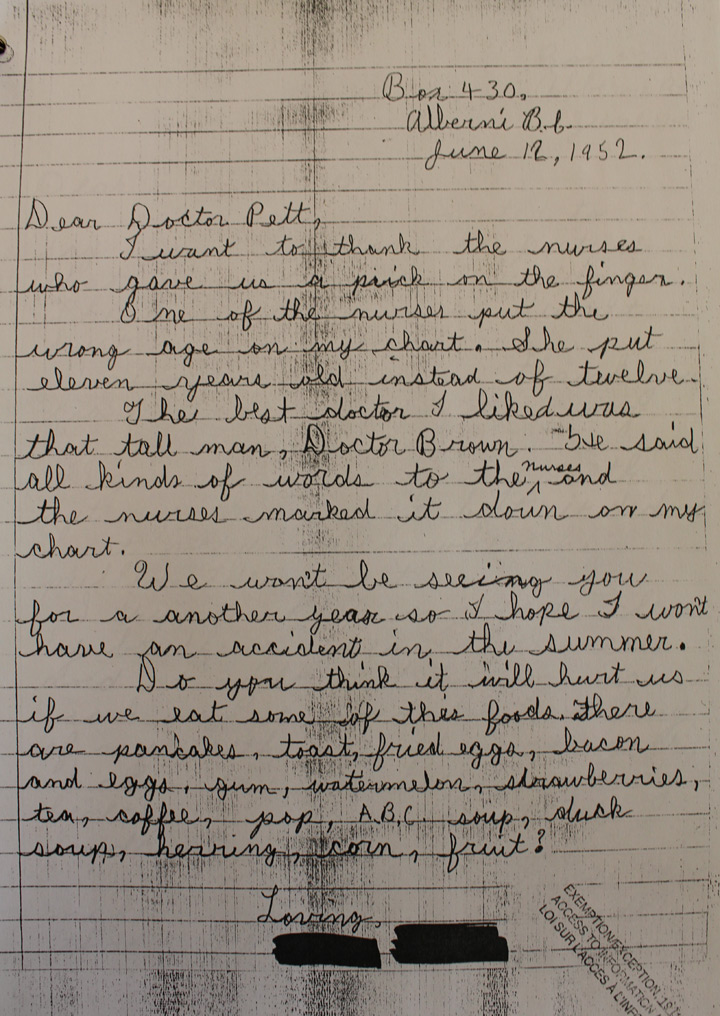 Box 430,
Alberni B.C.
June 12, 1952.
Dear Doctor Pett,
I want to thank the nurses
who gave us a prick on the finger.
One of the nurses put the
wrong age on my chart. She put
eleven years old instead of twelve.
The best doctor I liked was
that tall man, Doctor Brown. He said
all kinds of words to the nurses and
the nurses marked it down on my
chart.
We won't be seeing you
for a another year so I hope I won't
have an accident in the summer.
Do you think it will hurt us
if we eat some of this foods. There
are pancakes, toast, fried eggs, bacon
and eggs, gum, watermelon, strawberries,
tea, coffee, pop, A.B.C. soup, duck
soup, herring, corn, fruit?
Loving,
EXEMPTION/EXCEPTION
ACCESS TO INFORMATION
LOI SUR L'ACCÈS À L'INF